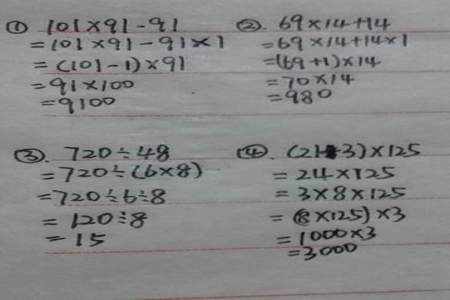 ① 101×91-91
=101×91-91×1
=(101-1)×91
=91×100
=9100
②. 69×14+14
=69×14+14×1
=(69+1)×14
=70×14
=980
③. 720÷48
=720÷(6×8)
=720÷6÷8
=120÷8
=15
④. (21+3)×125
=24×125
=3×8×125
=(8×125)×3
=1000×3
=3000